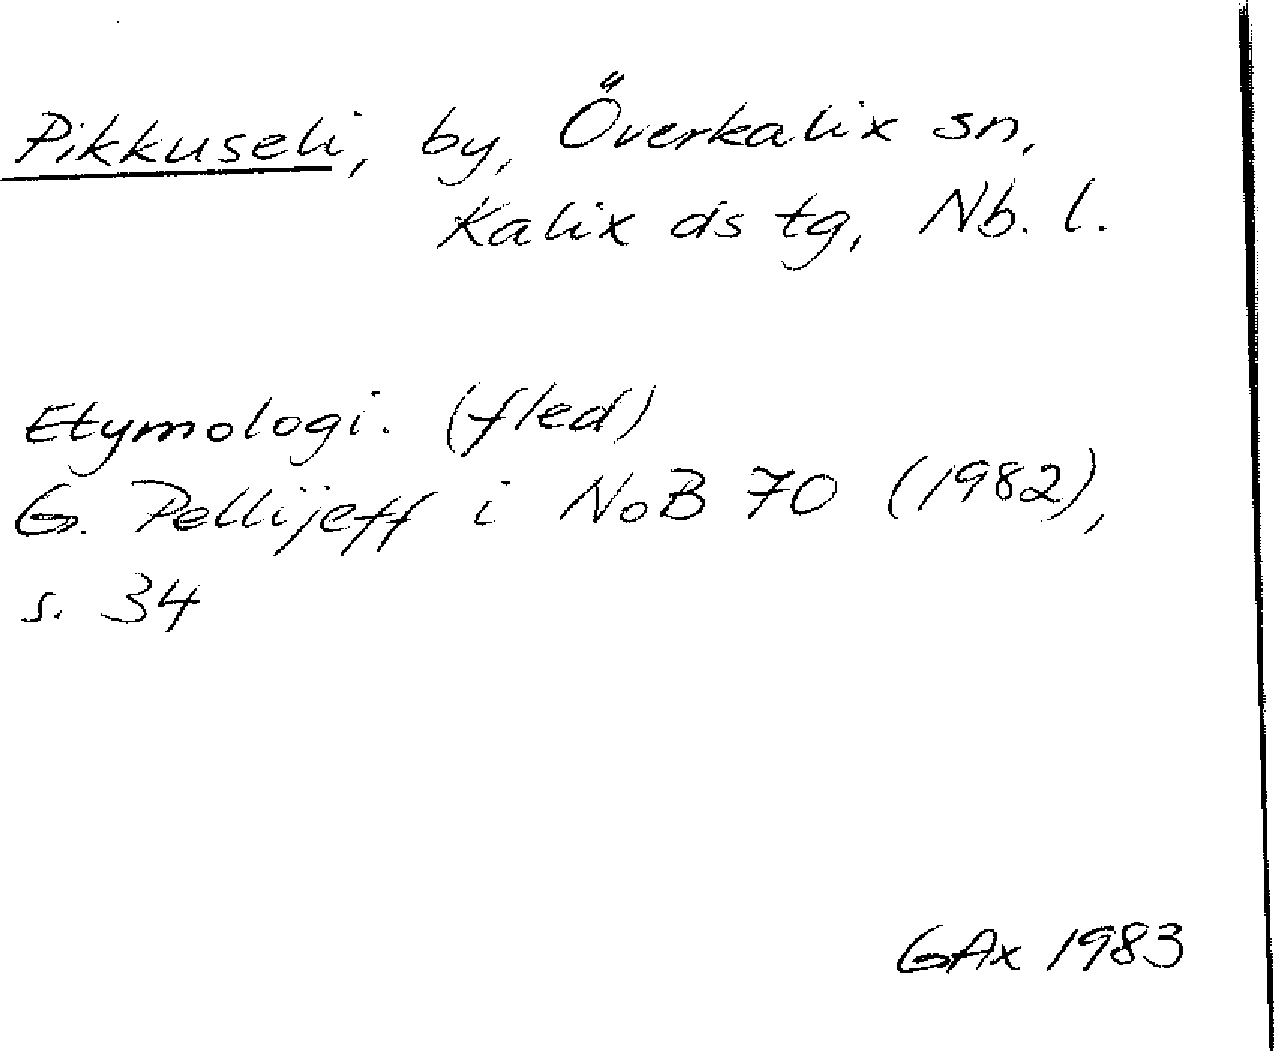 Pikkuseli, by, Överkalix sn,
Kalix ds tg, Nb. l.
Etymologi. (fled)
G. Pellijeff i NoB 70 (1982),
s. 34
GAx 1983